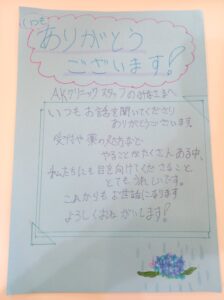 いつも
ありがとう
ございます!
AKクリニック スタッフのみなさまへ
いつもお話を聞いてくださり
ありがとうございます。
受付や薬の処方など、
やることがたくさんある中、
私たちにも目を向けてくださること、
とてもうれしいです。
これからもお世話になります
よろしくおねがいします!